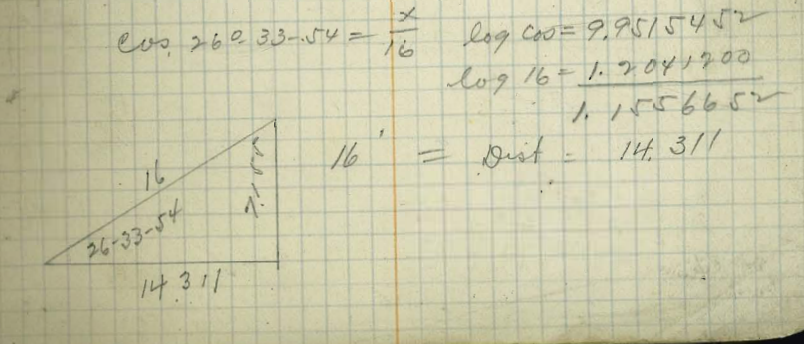 cos. 26°-33-54 = x/16 log cos = 9.9515452
log 16 = 1.2041200
1.1556652
16' = Dist = 14.311
16
26-33-54
7.155
14.311